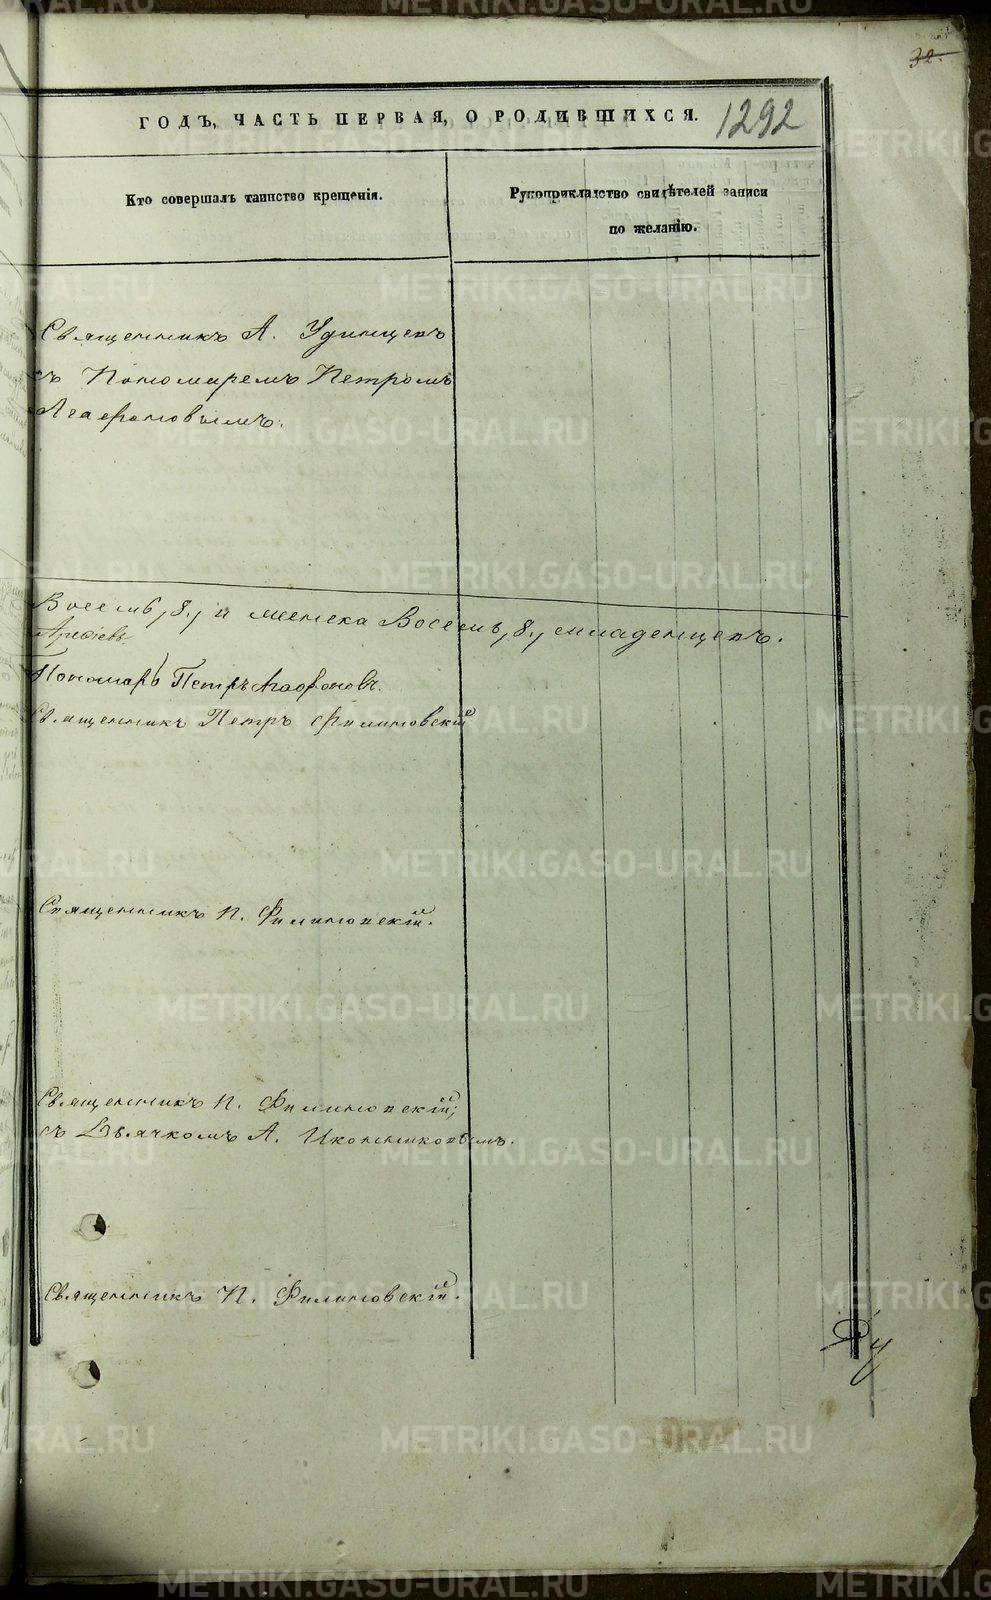 32.
ГОДЪ, ЧАСТЬ ПЕРВАЯ, О РОДИВШИХСЯ. 1292
Кто совершалъ таинство крещенія.
Рукоприкладство свидѣтелей записи
по желанію.
Священникъ А. Удинцевъ
съ Пономаремъ Петромъ
Агафоновымъ.
Восемь /8./ и женска Восемь /8./ младенцевъ.
Арефіевъ
Пономарь Петръ Агафоновъ.
Священникъ Петръ Филиповскій
Священникъ П. Филиповскій.
Священникъ П. Филиповскій;
съ Дьячкомъ А. Иконниковымъ.
Священникъ П. Филиповскій.
METRIKI.GASO-URAL.RU